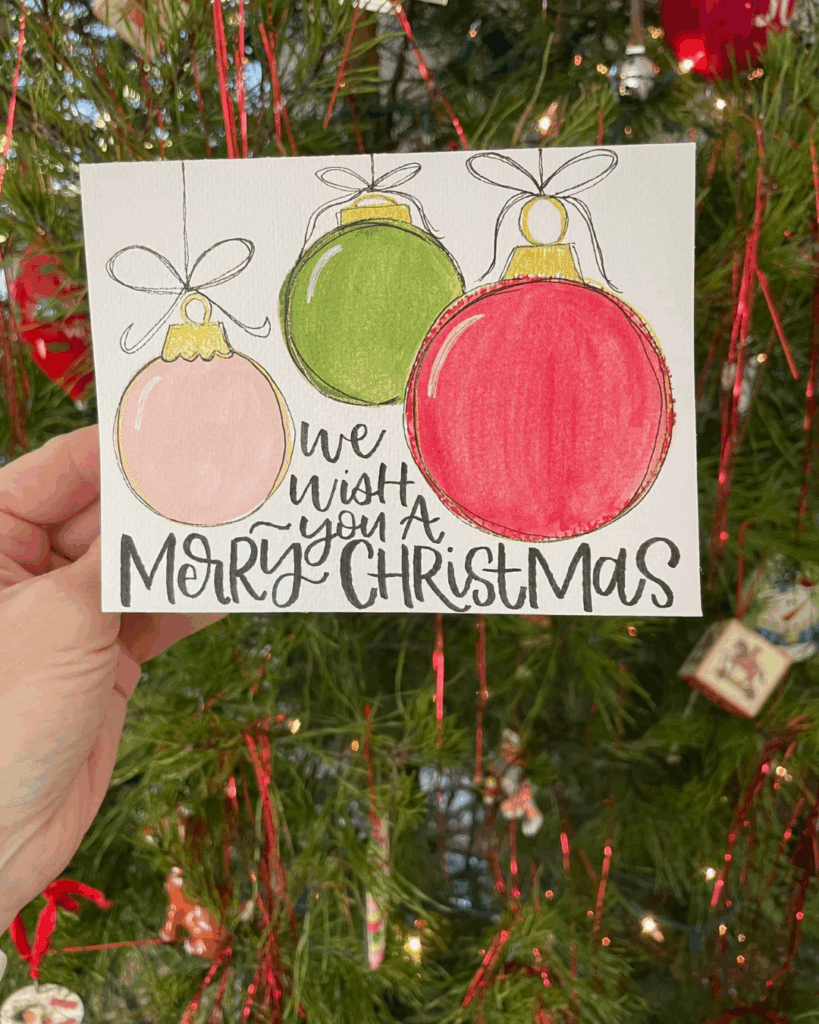 we
wisH
~you A
MeRRy CHRistMaS